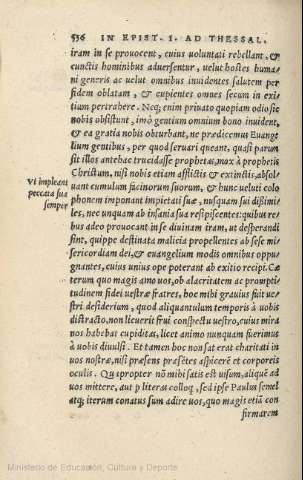 536 IN EPIST. I. AD THESSAL.
iram in se prouocent, cuius voluntati rebellant, &
cunctis hominibus aduersentur, uelut hostes huma
ni generis ac uelut omnibus inuidentes salutem per
fidem oblatam, & cupientes omnes secum in exi
tium pertrahere. Neq; enim priuato quopiam odio sic
nobis obsistunt, imò gentium omnium bono inuident,
& ea gratia nobis obturbant, ne prædicemus Euange
lium gentibus, per quod seruari queant, quasi parum
sit illos antehac trucidasse prophetas, mox à prophetis
Christum, nisi nobis etiam afflictis & extinctis, absol
uant cumulum facinorum suorum, & hunc ueluti colo
phonem imponant impietati suæ, nusquam sui dißimi
les, nec unquam ab insania sua resipiscentes: quibus re
bus adeo prouocant in se diuinam iram, ut desperandi
sint, quippe destinata malicia propellentes ab sese mi
sericordiam dei, & euangelium modis omnibus oppu
gnantes, cuius unius ope poterant ab exitio recipi. Cæ
terum quo magis amo uos, ob alacritatem ac prompti
tudinem fidei uestræ fratres, hoc mihi grauius fuit ue
stri desiderium, quod aliquantulum temporis à uobis
distracto, non licuerit frui conspectu uestro, cuius mira
nos habebat cupiditas, licet animo nunquam fuerimus
à uobis diuulsi. Et tamen hoc non sat erat charitati in
uos nostræ, nisi præsens præsetes aspicerē et corporeis
oculis. Quapropter nō mihi satis est uisum, aliquē ad
uos mittere, aut p literas colloq, sed ipse Paulus semel
atq; iterum conatus sum adire uos, quo magis etiā con
firmarem
Vt impleant
peccata sua
semper
Ministerio de Educación, Cultura y Deporte